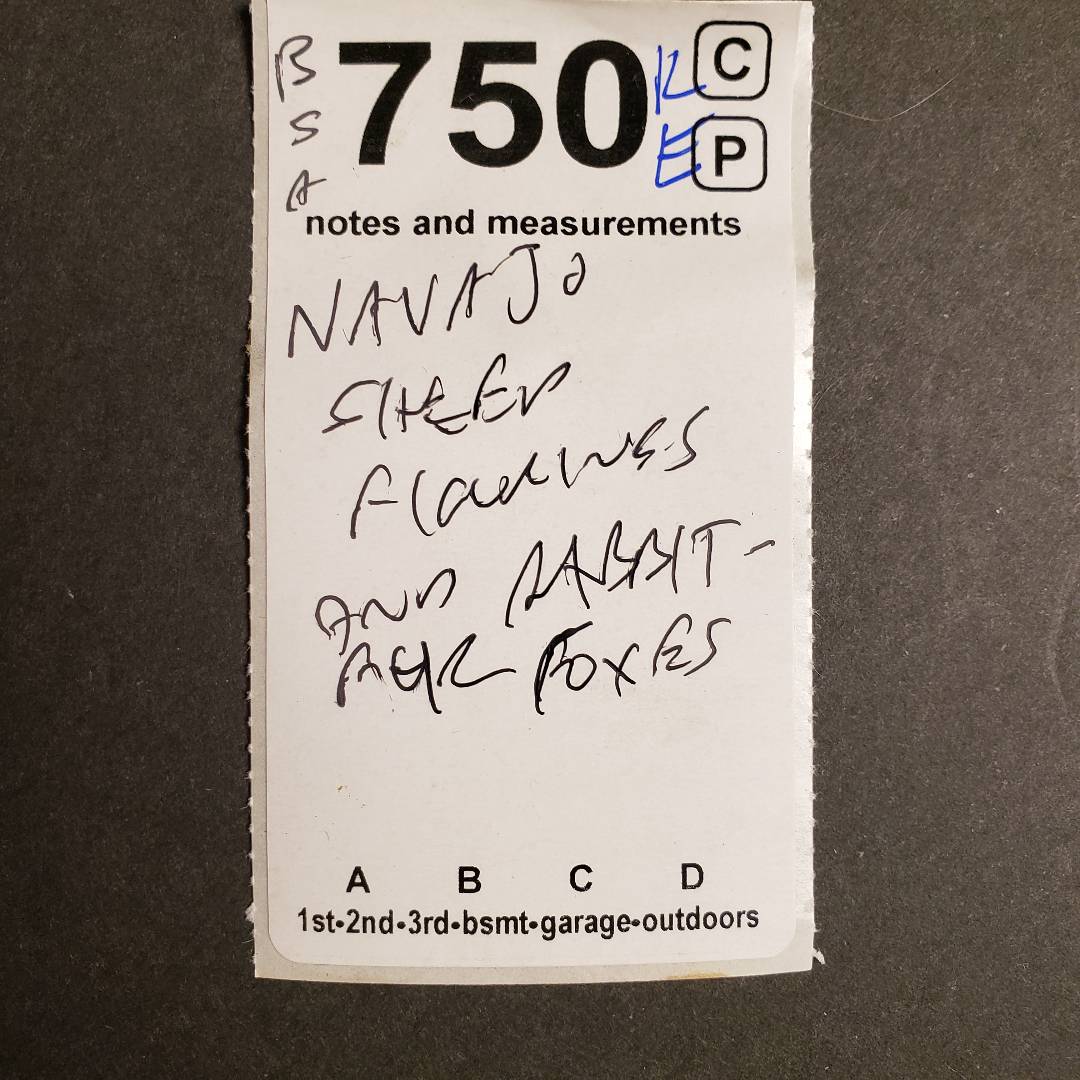 B 750 K C
S E P
A
notes and measurements
NAVAJO
SHEEP
AND RABBIT-
FOXES
A B C D
1st•2nd•3rd•bsmt•garage•outdoors